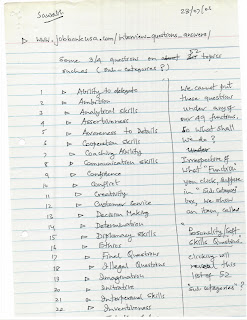 Sawant
28/07/02
▷ www.jobbankusa.com/interview_questions_answers/
Some 3/4 questions on about 52 topics
(Sub-categories?)
1 ▷ Ability to delegate
2 ▷ Ambition
3 ▷ Analytical Skills
4 ▷ Assertiveness
5 ▷ Awareness to Details
6 ▷ Cooperation Skills
7 ▷ Coaching Ability
8 ▷ Communication skills
9 ▷ Competence
10 ▷ Conflict
11 ▷ Creativity
12 ▷ Customer Service
13 ▷ Decision Making
14 ▷ Determination
15 ▷ Diplomacy Skills
16 ▷ Ethics
17 ▷ Final Questions
18 ▷ Illegal Questions
19 ▷ Imagination
20 ▷ Initiative
21 ▷ Interpersonal Skills
22 ▷ Inventiveness
We cannot put
these questions
under any of
our 49 functions.
So what shall
we do?
Under
Irrespective of
what "Function"
you click,
in "Sub Category"
box, we show
an item, called
"Personality/Soft
Skills Questions
clicking will
reveal this
list of 52
"Sub categories"?